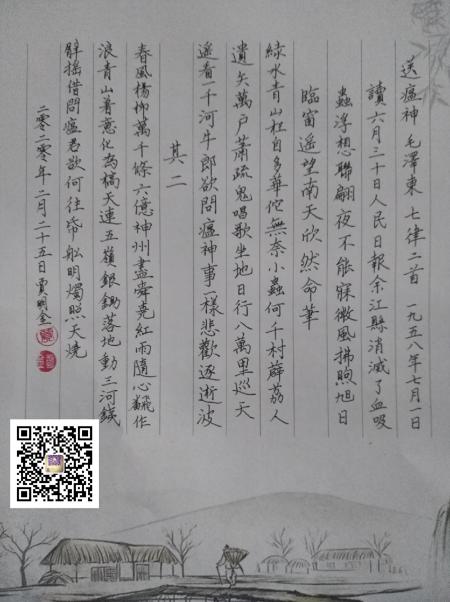 送瘟神 毛澤東 七律二首 一九五八年七月一日
讀六月三十日人民日報余江縣消滅了血吸
蟲浮想聯翩夜不能寐微風拂煦旭日
臨窗遥望南天欣然命筆
綠水青山枉自多華佗無奈小蟲何千村薜荔人
遺矢萬户蕭疏鬼唱歌坐地日行八萬里巡天
遥看一千河牛郎欲問瘟神事一樣悲歡逐逝波
其二
春風楊柳萬千條六億神州盡舜堯紅雨隨心翻作
浪青山着意化為橋天連五嶺銀鋤落地動三河鐵
臂摇借問瘟君欲何往帋船明燭照天燒
二零二零年二月二十五日賈明金